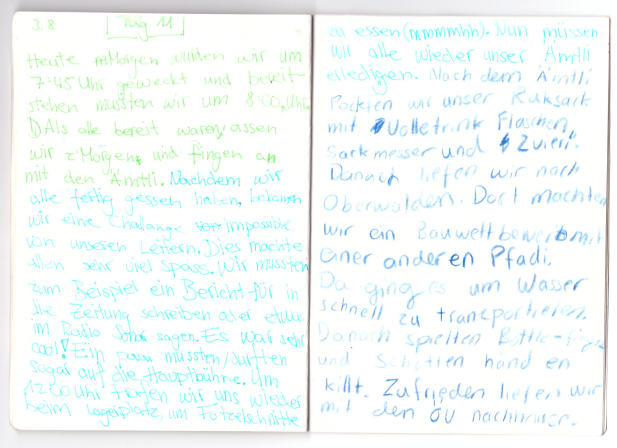 3.8 Tag 11
Heute Morgen wurden wir um
7:45 Uhr geweckt und bereit
stehen mussten wir um 8:00 Uhr.
Als alle bereit waren, assen
wir z'Morgen und fingen an
mit den Ämtli. Nachdem wir
alle fertig gessen haben, bekamen
wir eine Challange impossible
von unseren Leitern. Dies machte
allen sehr viel Spass. Wir mussten
zum Beispiel ein Bericht für in
die Zeitung schreiben oder etwas
im Radio sagen. Es war sehr
cool! Ein paar mussten/durften
sogar auf die Hauptbühne. Um
12:00 Uhr trafen wir uns wieder
beim Lagerplatz, um Fotzelschnitte
zu essen (mmmmhh). Nun müssen
wir alle wieder unser Ämtli
erledigen. Nach dem Ämtli
Packten wir unser Ruksack
mit Volletrink Flaschen,
Sackmesser und Zvieri.
Danach liefen wir nach
Oberwalden. Dort machten
wir ein Bauwettbewerb mit
einer anderen Pfadi.
Da ging es um Wasser
schnell zu transportieren.
Danach spielten Bottle-
und Schitten händ en
killt. Zufrieden liefen wir
mit den ÖV nachhause.